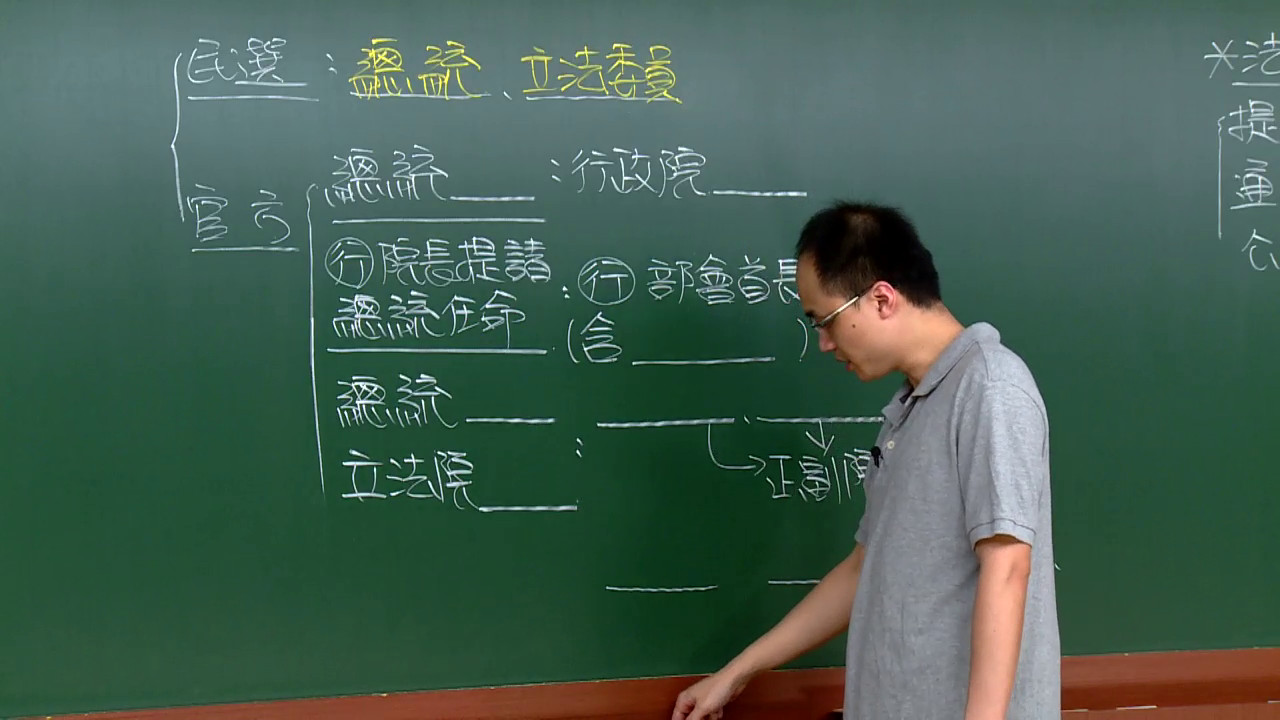 民選：總統、立法委員
官方
總統____：行政院____
行院長提請
總統任命：行部會首長
(含____)
總統____：____、____
立法院____
正副院
*法
提
通